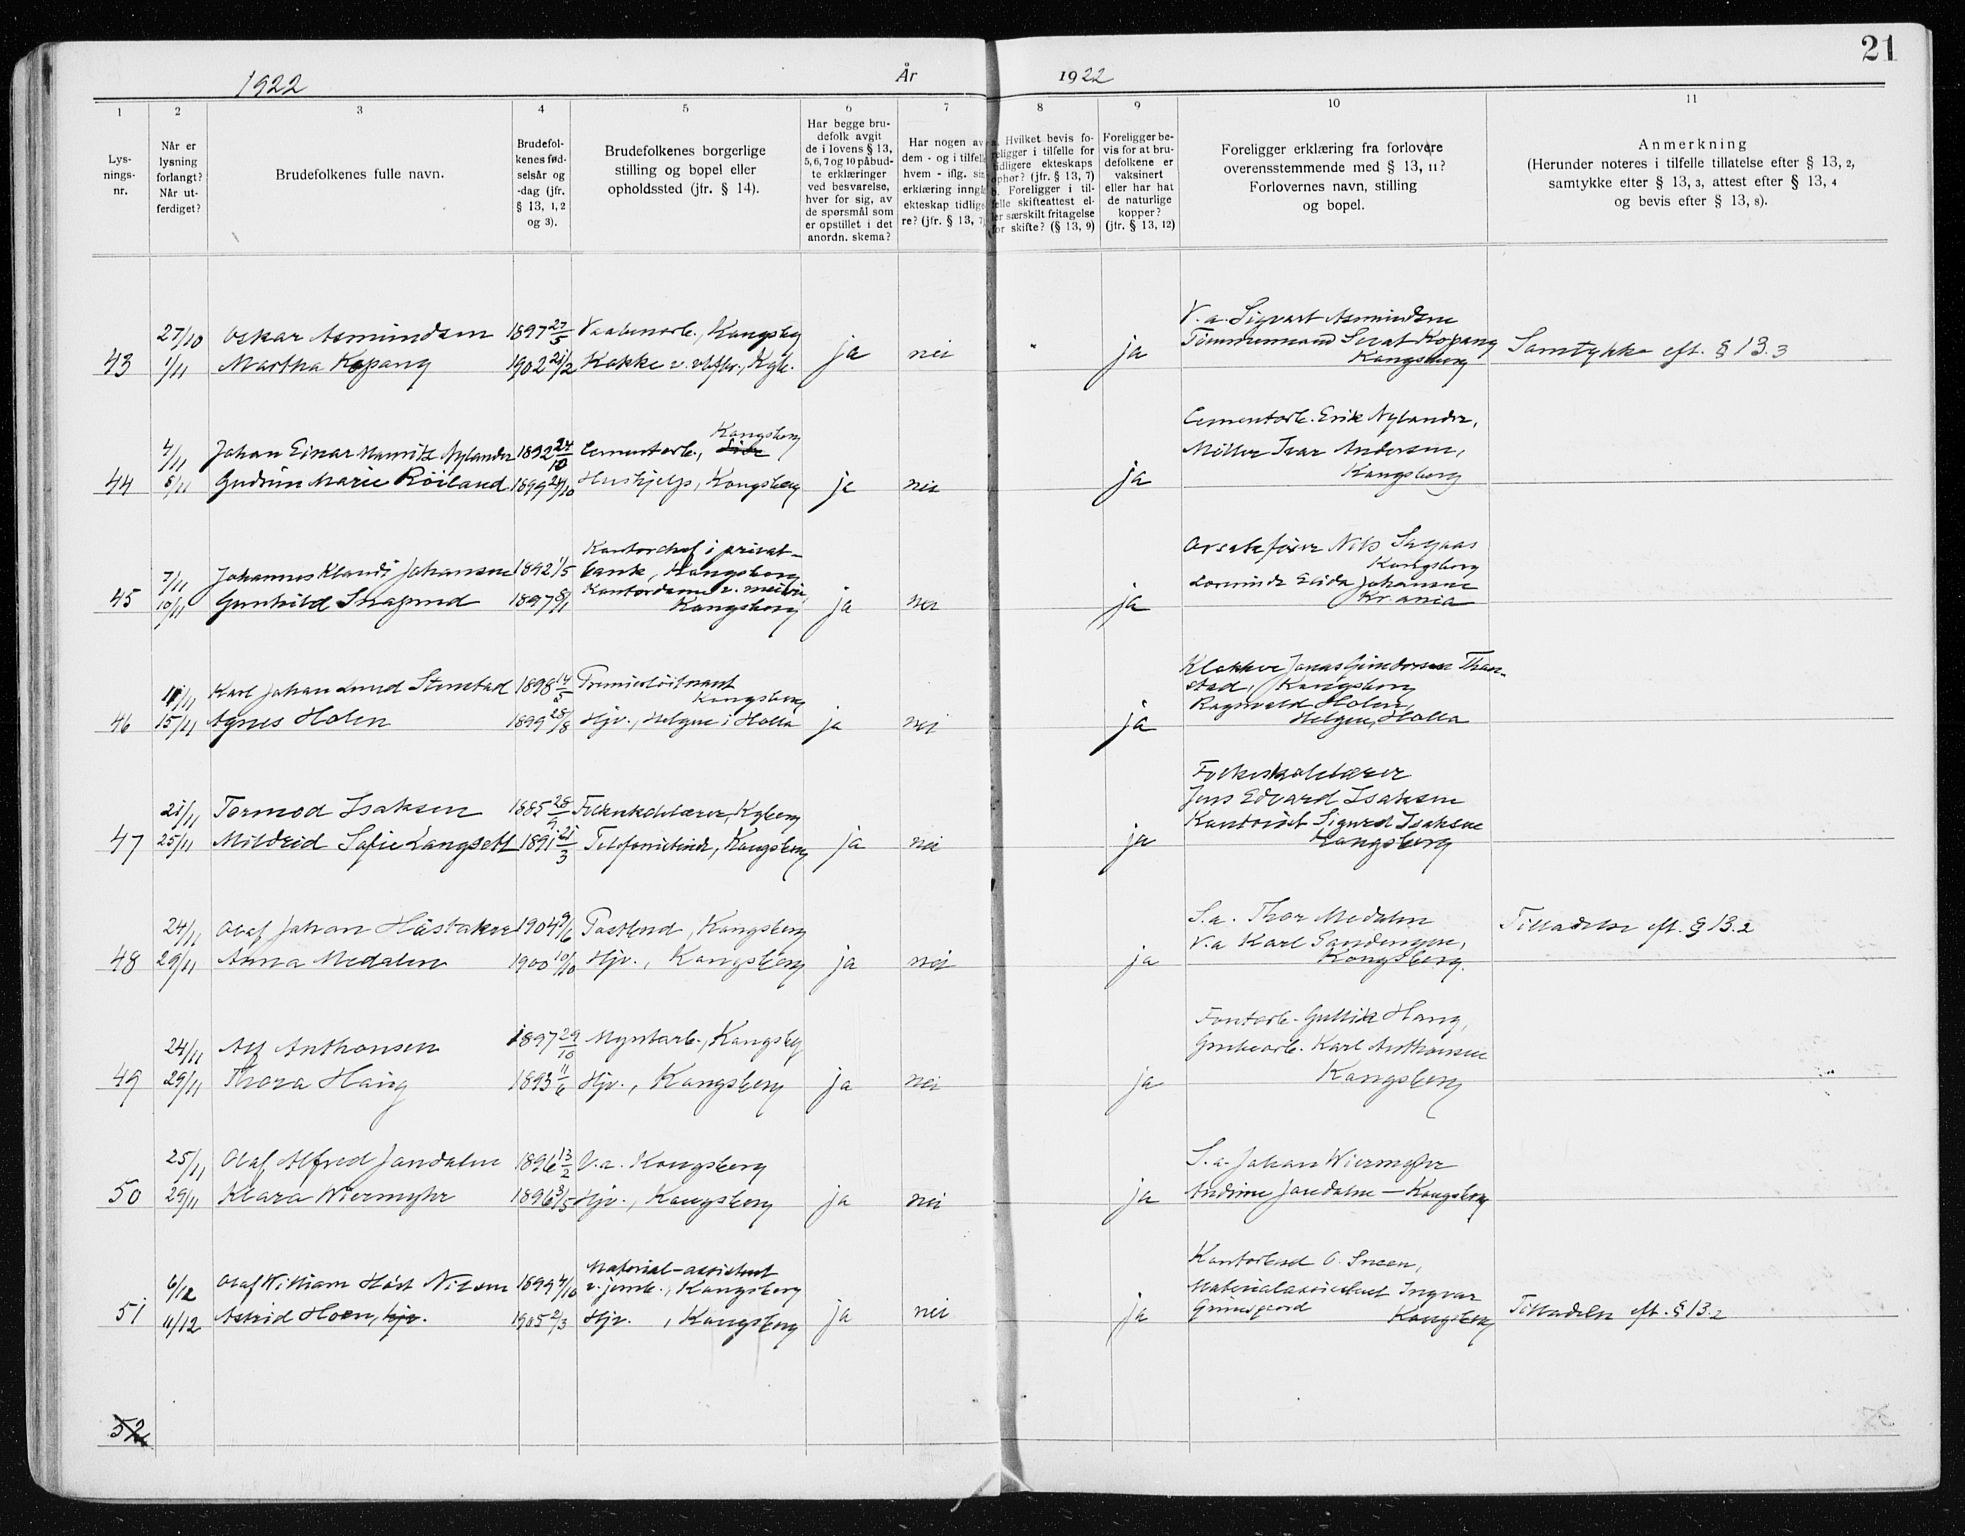 21
1922 År 1922
1 2 3 4 5 6 7 8 9 10 11
Lys-
nings-
nr.
Når er
lysning
forlangt?
Når ut-
ferdiget?
Brudefolkenes fulle navn.
Brudefol-
kenes fød-
selsår og
-dag (jfr.
§ 13, 1, 2
og 3).
Brudefolkenes borgerlige
stilling og bopel eller
opholdssted (jfr. § 14).
Har begge bru-
defolk avgit
de i lovens § 13,
5, 6, 7 og 10 påbud-
te erklæringer
ved besvarelse,
hver for sig, av
de spørsmål som
er opstillet i det
anordn. skema?
Har nogen av
dem - og i tilfelle
hvem - iflg. sin
erklæring inngåt
ekteskap tidlige-
re? (jfr. § 13, 7)
a. Hvilket bevis fo-
religger i tilfelle for
tidligere ekteskaps
ophør? (jfr. § 13, 7)
b. Foreligger i til-
felle skifteattest el-
ler særskilt fritagelse
for skifte? (§ 13, 9)
Foreligger be-
vis for at bru-
defolkene er
vaksinert
eller har hat
de naturlige
kopper?
(jfr. § 13, 12)
Foreligger erklæring fra forlovere
overensstemmende med § 13, 11?
Forlovernes navn, stilling
og bopel.
Anmerkning
(Herunder noteres i tilfelle tillatelse efter § 13, 2,
samtykke efter § 13, 3, attest efter § 13, 4
og bevis efter § 13, 8).
V.a. Sigvart Asmundsen
27/10 Oskar Asmundsen 1897 27/5 Vaabenarb., Kongsberg
Tømmermand Kopang
Kongsberg
43 1/11 Martha Kopang 1902 21/2 Kokke ja nei " ja Samtykke eft. § 13.3
Cementarb. Erik Nylander,
Kongsberg
4/11 Johan Einar Nylander 1892 24/10 Cementarb.,
Møller Ivar Andersen,
Kongsberg
44 8/11 Gudrun Marie Röiland 1899 24/10 Hushjelp, Kongsberg ja nei ja
Kontorchef i privat-
bank, Kongsberg
7/11 Johannes Klaudi Johansen 1892 1/5
Nils
Kongsberg
Elida Johansen
Kr.ania
45 10/11 Gunhild 1897 8/1 Kontordame v. meieri, Kongsberg ja nei ja
11/11 Karl Johan Lund Stenstad 1898 14/5 Premierløitnant
Kongsberg
Klokker Jonas Than-
stad, Kongsberg
Ragnvald Holen,
Helgen, Holla
46 15/11 Agnes Holen 1899 28/8 Hjv., Helgen i Holla ja nei ja
Folkeskolelærer
21/11 Tormod Isaksen 1885 28/9 Folkeskolelærer, Kgberg
Jens Edvard Isaksen
Kontorist Sigurd Isaksen
Kongsberg
47 25/11 Mildrid Sofie Langsett 1891 21/3 Telefonistinde, Kongsberg ja nei ja
24/11 Olaf Johan 1904 9/6 Postbud, Kongsberg
S.a. Thor Medalen
V.a. Karl Sandengen,
Kongsberg.
Tilladelse eft. § 13.2
48 29/11 Anna Medalen 1900 10/10 Hjv., Kongsberg ja nei ja
24/11 Alf Anthonsen 1897 29/10 Myntarb., Kongsberg
Gullik Haug,
Grubearb. Karl Anthonsen
Kongsberg
49 29/11 Thora Haug 1893 11/6 Hjv., Kongsberg ja nei ja
25/11 Olaf Alfred Jondalen 1896 13/2 V.a. Kongsberg
S.a. Johan Wiermyhr
50 29/11 Klara Wiermyhr 1896 3/5 Hjv., Kongsberg ja nei ja Andrine Jondalen — Kongsberg
Material-assistent
v. jernb., Kongsberg
6/12 Olaf William Höst Nilsen 1899 4/10
Kontorbud O. Sneen,
Materialassistent Ingvar
Grimsgaard
Kongsberg
51 11/12 Astrid Hoen, hjv. 1905 2/3 Hjv., Kongsberg ja nei ja Tilladelse eft. § 13.2
52